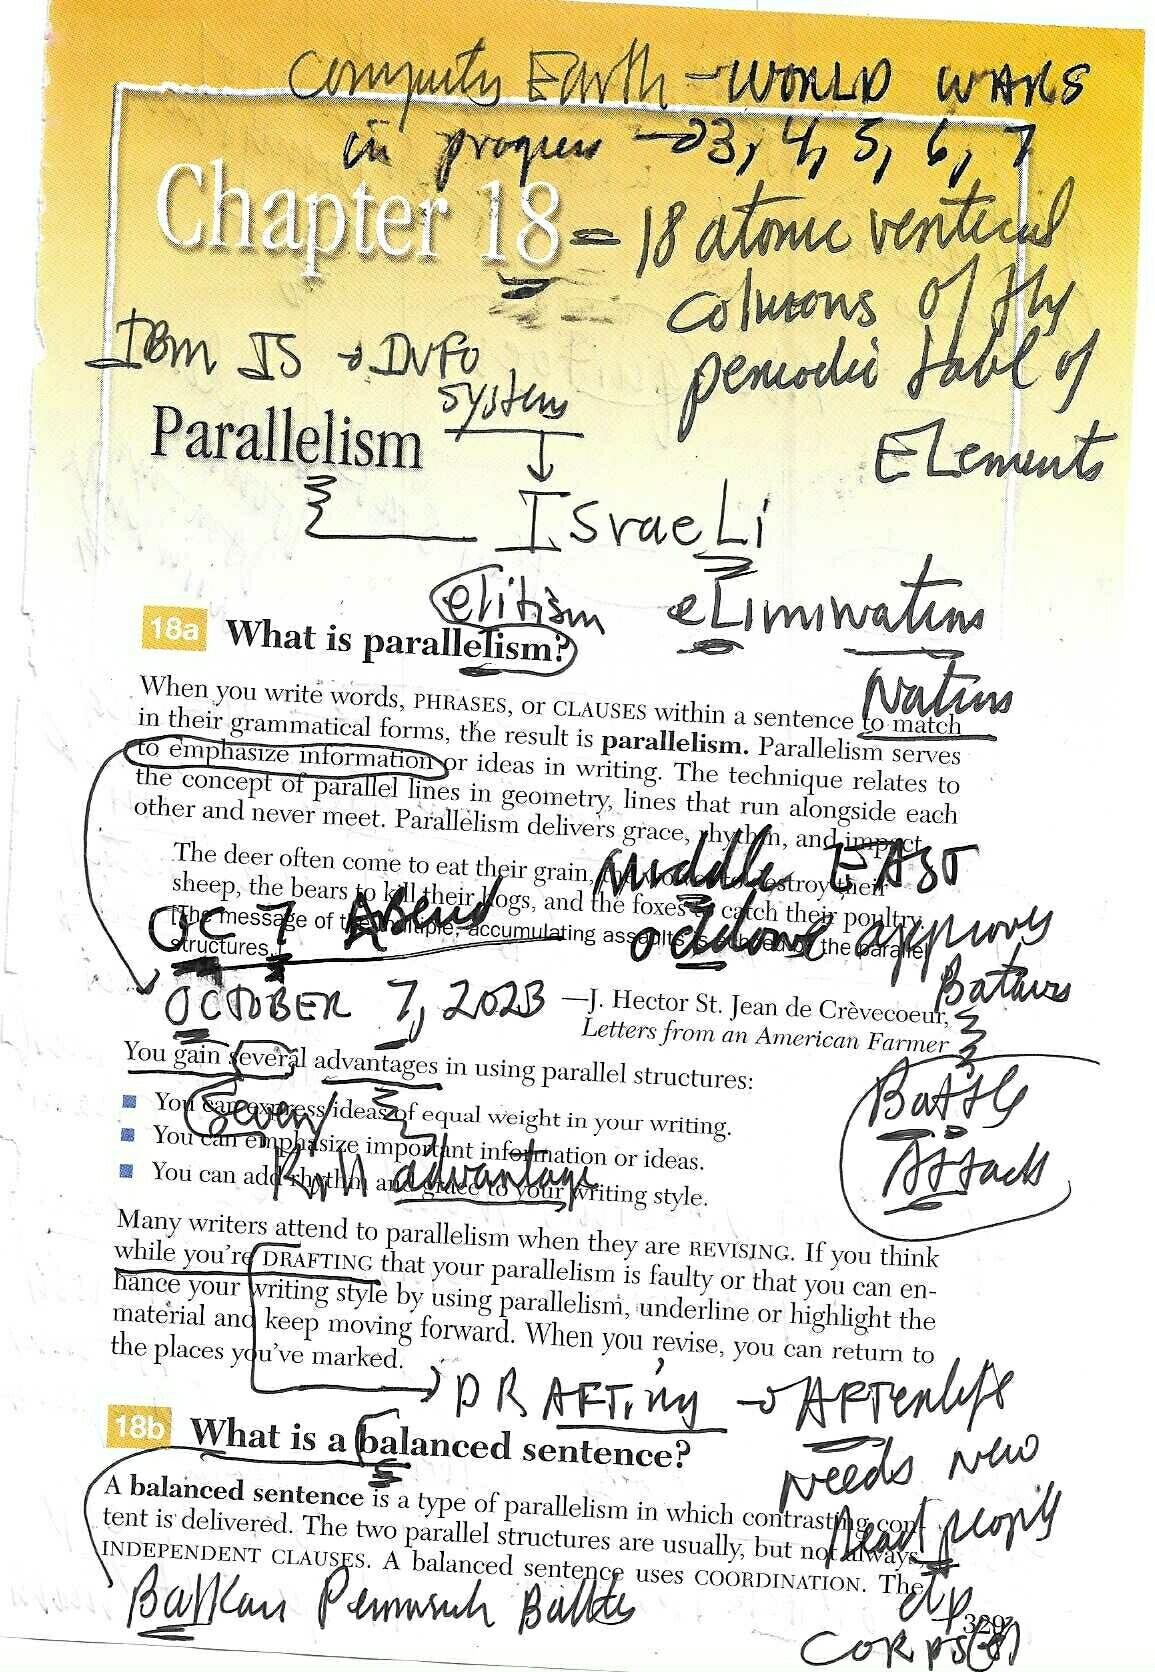 Computer Earth – WORLD WARS
in progress → 3, 4, 5, 6, 7
Chapter 18 = 18 atomic vertical
columns of the
IBM IS → INFO
periodic table of
system
Parallelism
ELements
IsraeLi
elitism eLimiNations
18a What is parallelism?
Nations
When you write words, PHRASES, or CLAUSES within a sentence to match
in their grammatical forms, the result is parallelism. Parallelism serves
to emphasize information or ideas in writing. The technique relates to
the concept of parallel lines in geometry, lines that run alongside each
other and never meet. Parallelism delivers grace, rhythm, and impact.
Middle EAST
The deer often come to eat their grain, the wolves to destroy their
sheep, the bears to kill their hogs, and the foxes to catch their poultry.
OC 7 Abend
approves
[The message of the multiple, accumulating assaults is echoed by the parallel
structures.
OCTOBER 7, 2023
—J. Hector St. Jean de Crèvecoeur,
Letters from an American Farmer
You gain several advantages in using parallel structures:
Battle
Attack
■ You can express ideas of equal weight in your writing.
Seven
■ You can emphasize important information or ideas.
Kill advantage
■ You can add rhythm and grace to your writing style.
Many writers attend to parallelism when they are REVISING. If you think
while you're DRAFTING that your parallelism is faulty or that you can en-
hance your writing style by using parallelism, underline or highlight the
material and keep moving forward. When you revise, you can return to
the places you've marked.
DRAFTing → AFTerlife
18b What is a balanced sentence?
Needs New
Dead people
A balanced sentence is a type of parallelism in which contrasting con-
tent is delivered. The two parallel structures are usually, but not always,
INDEPENDENT CLAUSES. A balanced sentence uses COORDINATION. The
Balkan Peninsula Battles
329
corps(es)